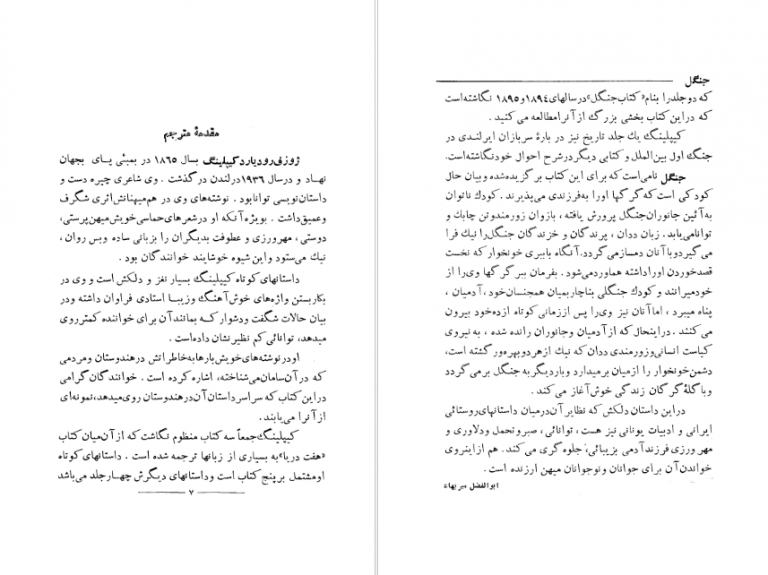 مقدمهٔ مترجم
ژوزف رودیارد کیپلینگ بسال ۱۸۶۵ در بمبئی پای بجهان
نهاد و درسال ۱۹۳۶ درلندن در گذشت . وی شاعری چیره دست و
داستان‌نویسی توانا بود . نوشته‌های وی در هم‌میهنانش اثری شگرف
وعمیق داشت . بویژه آنکه او درشعرهای حماسی خویش میهن‌پرستی،
دوستی ، مهرورزی و عطوفت بدیگران را بزبانی ساده وبس روان ،
نیك می‌ستود و این شیوه خوشایند خوانندگان بود .
داستانهای کوتاه کیپلینگ بسیار نغز و دلکش است و وی در
بکار بستن واژه‌های خوش‌آهنگ وزیبا استادی فراوان داشته ودر
بیان حالات شگفت ودشوار که بمانند آن برای خواننده کمتر روی
میدهد، توانائی کم نظیر نشان داده است .
او در نوشته‌های خویش بارها به خاطراتش در هندوستان و مردمی
که در آن سامان می‌شناخته، اشاره کرده است . خوانندگان گرامی
دراین کتاب که سراسر داستان آن درهندوستان روی میدهد، نمونه‌ای
از آنرا می‌یابند .
کیپلینگ جمعاً سه کتاب منظوم نگاشت که از آن میان کتاب
«هفت دریا» به بسیاری از زبانها ترجمه شده است . داستانهای کوتاه
او مشتمل بر پنج کتاب است و داستانهای دیگرش چهار جلد می‌باشد
۷
جنگل
که دو جلد را بنام «کتاب جنگل» در سالهای ۱۸۹۴ و ۱۸۹۵ نگاشته است
که دراین کتاب بخشی بزرگ از آنرا مطالعه می کنید .
کیپلینگ یك جلد تاریخ نیز در بارهٔ سربازان ایرلندی در
جنگ اول بین‌الملل و کتابی دیگر در شرح احوال خود نگاشته است.
جنگل نامی است که برای این کتاب برگزیده شده و بیان حال
کودکی است که گرگها اورا به فرزندی می‌پذیرند . کودك ناتوان
به آئین جانوران جنگل پرورش یافته ، بازوان زورمند و تن چابك و
توانا می‌یابد . زبان ددان ، پرندگان و خزندگان جنگل را نیك فرا
می‌گیرد و با آنان دمساز می‌گردد. آنگاه با ببری خونخوار که نخست
قصد خوردن او را داشته هماورد می‌شود . بفرمان ببر گرگها وی را از
خود میرانند و کودك جنگلی بناچار بمیان همجنسان خود ، آدمیان ،
پناه میبرد ، اما آنان نیز وی را پس از زمانی کوتاه ازده خود بیرون
می‌کنند . دراینحال که از آدمیان و جانوران رانده شده ، به نیروی
کیاست انسانی و زورمندی ددان که نیك از هر دو بهره‌ور گشته است،
دشمن خونخوار را از میان برمیدارد و بار دیگر به جنگل برمی‌گردد
و با گلهٔ گرگان زندگی خوش آغاز می‌کند .
دراین داستان دلکش که نظایر آن درمیان داستانهای روستائی
ایرانی و ادبیات یونانی نیز هست ، توانائی ، صبر و تحمل و دلاوری و
مهرورزی فرزند آدمی بزیبائی جلوه گری می کند . هم از اینروی
خواندن آن برای جوانان و نوجوانان میهن ارزنده است .
ابوالفضل میربهاء